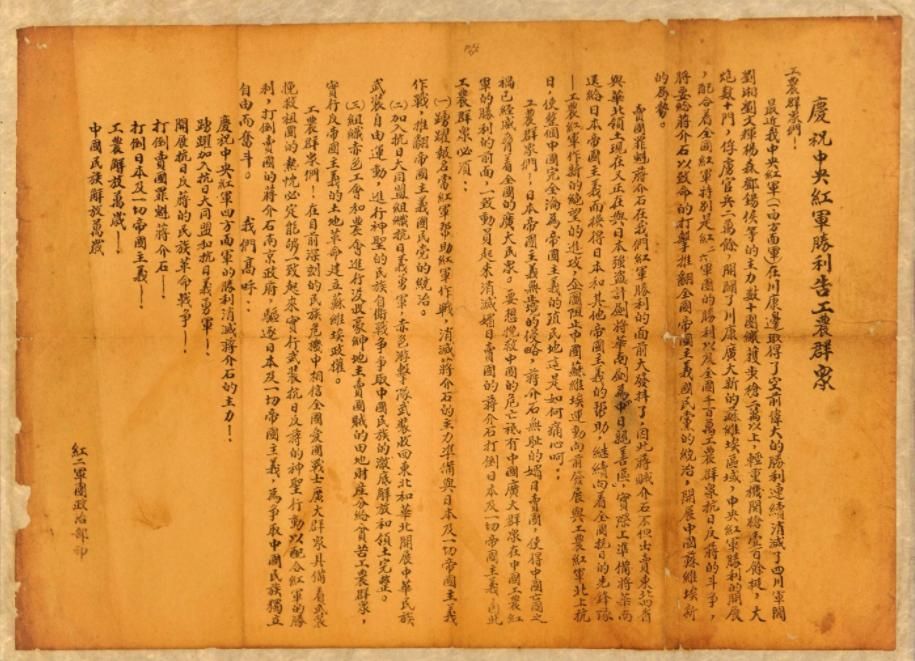 慶祝中央紅軍勝利告工農群衆
工農群衆們!
最近我中央紅軍(一四方面軍)在川康邊取得了空前偉大的勝利連續消滅了四川軍閥
劉湘劉文輝楊森鄧錫侯等的主力數十團繳獲步槍二萬以上,輕重機關槍壹百餘挺,大
炮數十門,俘虜官兵二萬餘,開闢了川康廣大新的蘇維埃區域,中央紅軍勝利的開展
,配合着全國紅軍特別是紅二六軍團的勝利以及全國千百萬工農群衆抗日反蔣的斗爭,
將要給蔣介石以致命的打擊推翻全國帝國主義國民党的統治,開展中國蘇維埃新
的局勢。
賣國罪魁蔣介石在我們紅軍勝利的面前大發抖了,因此蔣賊介石不但出賣東北四省
與華北領土現在又正在與日本強盜計劃將華南劃為中日親善區,實際上準備將華南
送給日本帝國主義而換得日本和其他帝國主義的幫助,繼續向着全國抗日的先鋒隊
—工農紅軍作新的絕望的進攻,企圖阻止中國蘇維埃運動向前發展與工農紅軍北上抗
日,使整個中國完全淪為帝國主義的殖民地這是如何痛心呵!
工農群衆們!日本帝國主義無恥的侵略,蔣介石無恥的媚日賣國,使得中國亡國之
禍已經威脅着全國的廣大民衆。要想挽救中國的危亡祗有中國廣大群衆在中國工農紅
軍的勝利的前面,一致動員起來消滅媚日賣國的蔣介石打倒日本及一切帝國主義,為此
工農群衆必須:
(一)踴躍報名當紅軍幫助紅軍作戰,消滅蔣介石的主力準備與日本及一切帝國主義
作戰,推翻帝國主義國民党的統治。
(二)加入抗日大同盟組織抗日義勇軍,赤色游擊隊武裝收回東北和華北開展中華民族
武裝自由運動,進行神聖的民族自衛戰爭爭取中國民族的澈底解放和領土完整。
(三)組織赤色工會和農會進行沒收豪紳地主賣國賊的田地財產分給貧苦工農群衆,
實行反帝國主義的土地革命建立蘇維埃政權。
工農群衆們!在目前深刻的民族危機中相信全國愛國戰士廣大群衆具備着武裝
挽救祖國的熱忱必定能夠一致起來實行武裝抗日反蔣的神聖行動以配合紅軍的勝
利,打倒賣國的蔣介石南京政府,驅逐日本及一切帝國主義,為爭取中國民族獨立
自由而奮斗。 我們高呼:
慶祝中央紅軍四方面軍的勝利消滅蔣介石的主力!
踴躍加入抗日大同盟和抗日義勇軍!
開展抗日反蔣的民族革命戰爭!
打倒賣國罪魁蔣介石!
打倒日本及一切帝國主義!
工農解放萬歲!
中國民族解放萬歲
紅二軍團政治部印